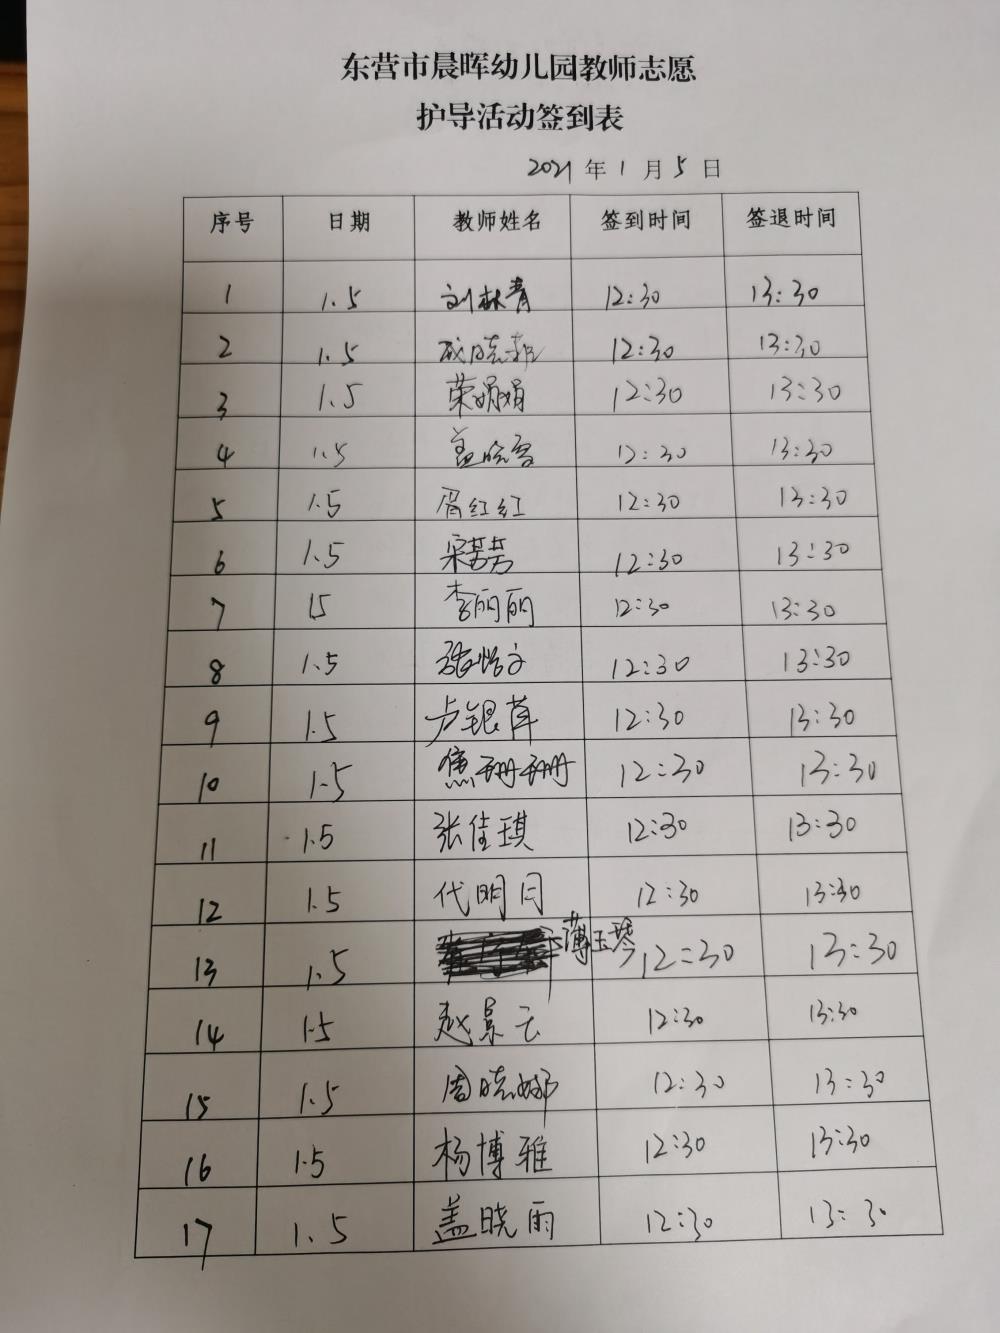 东营市晨晖幼儿园教师志愿
护导活动签到表
2021年1月5日
序号 日期 教师姓名 签到时间 签退时间
1 1.5 刘林青 12:30 13:30
2 1.5 12:30 13:30
3 1.5 荣娟娟 12:30 13:30
4 1.5 盖晓雪 12:30 13:30
5 1.5 胥红红 12:30 13:30
6 1.5 宋芳芳 12:30 13:30
7 15 李丽丽 12:30 13:30
8 1.5 张怡文 12:30 13:30
9 1.5 卢银萍 12:30 13:30
10 1.5 焦珊珊 12:30 13:30
11 1.5 张佳琪 12:30 13:30
12 1.5 代明月 12:30 13:30
13 1.5 薄玉琴 12:30 13:30
14 1.5 赵景云 12:30 13:30
15 1.5 周晓娜 12:30 13:30
16 1.5 杨博雅 12:30 13:30
17 1.5 盖晓雨 12:30 13:30